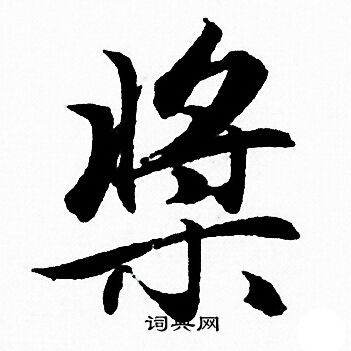 槳
词典网